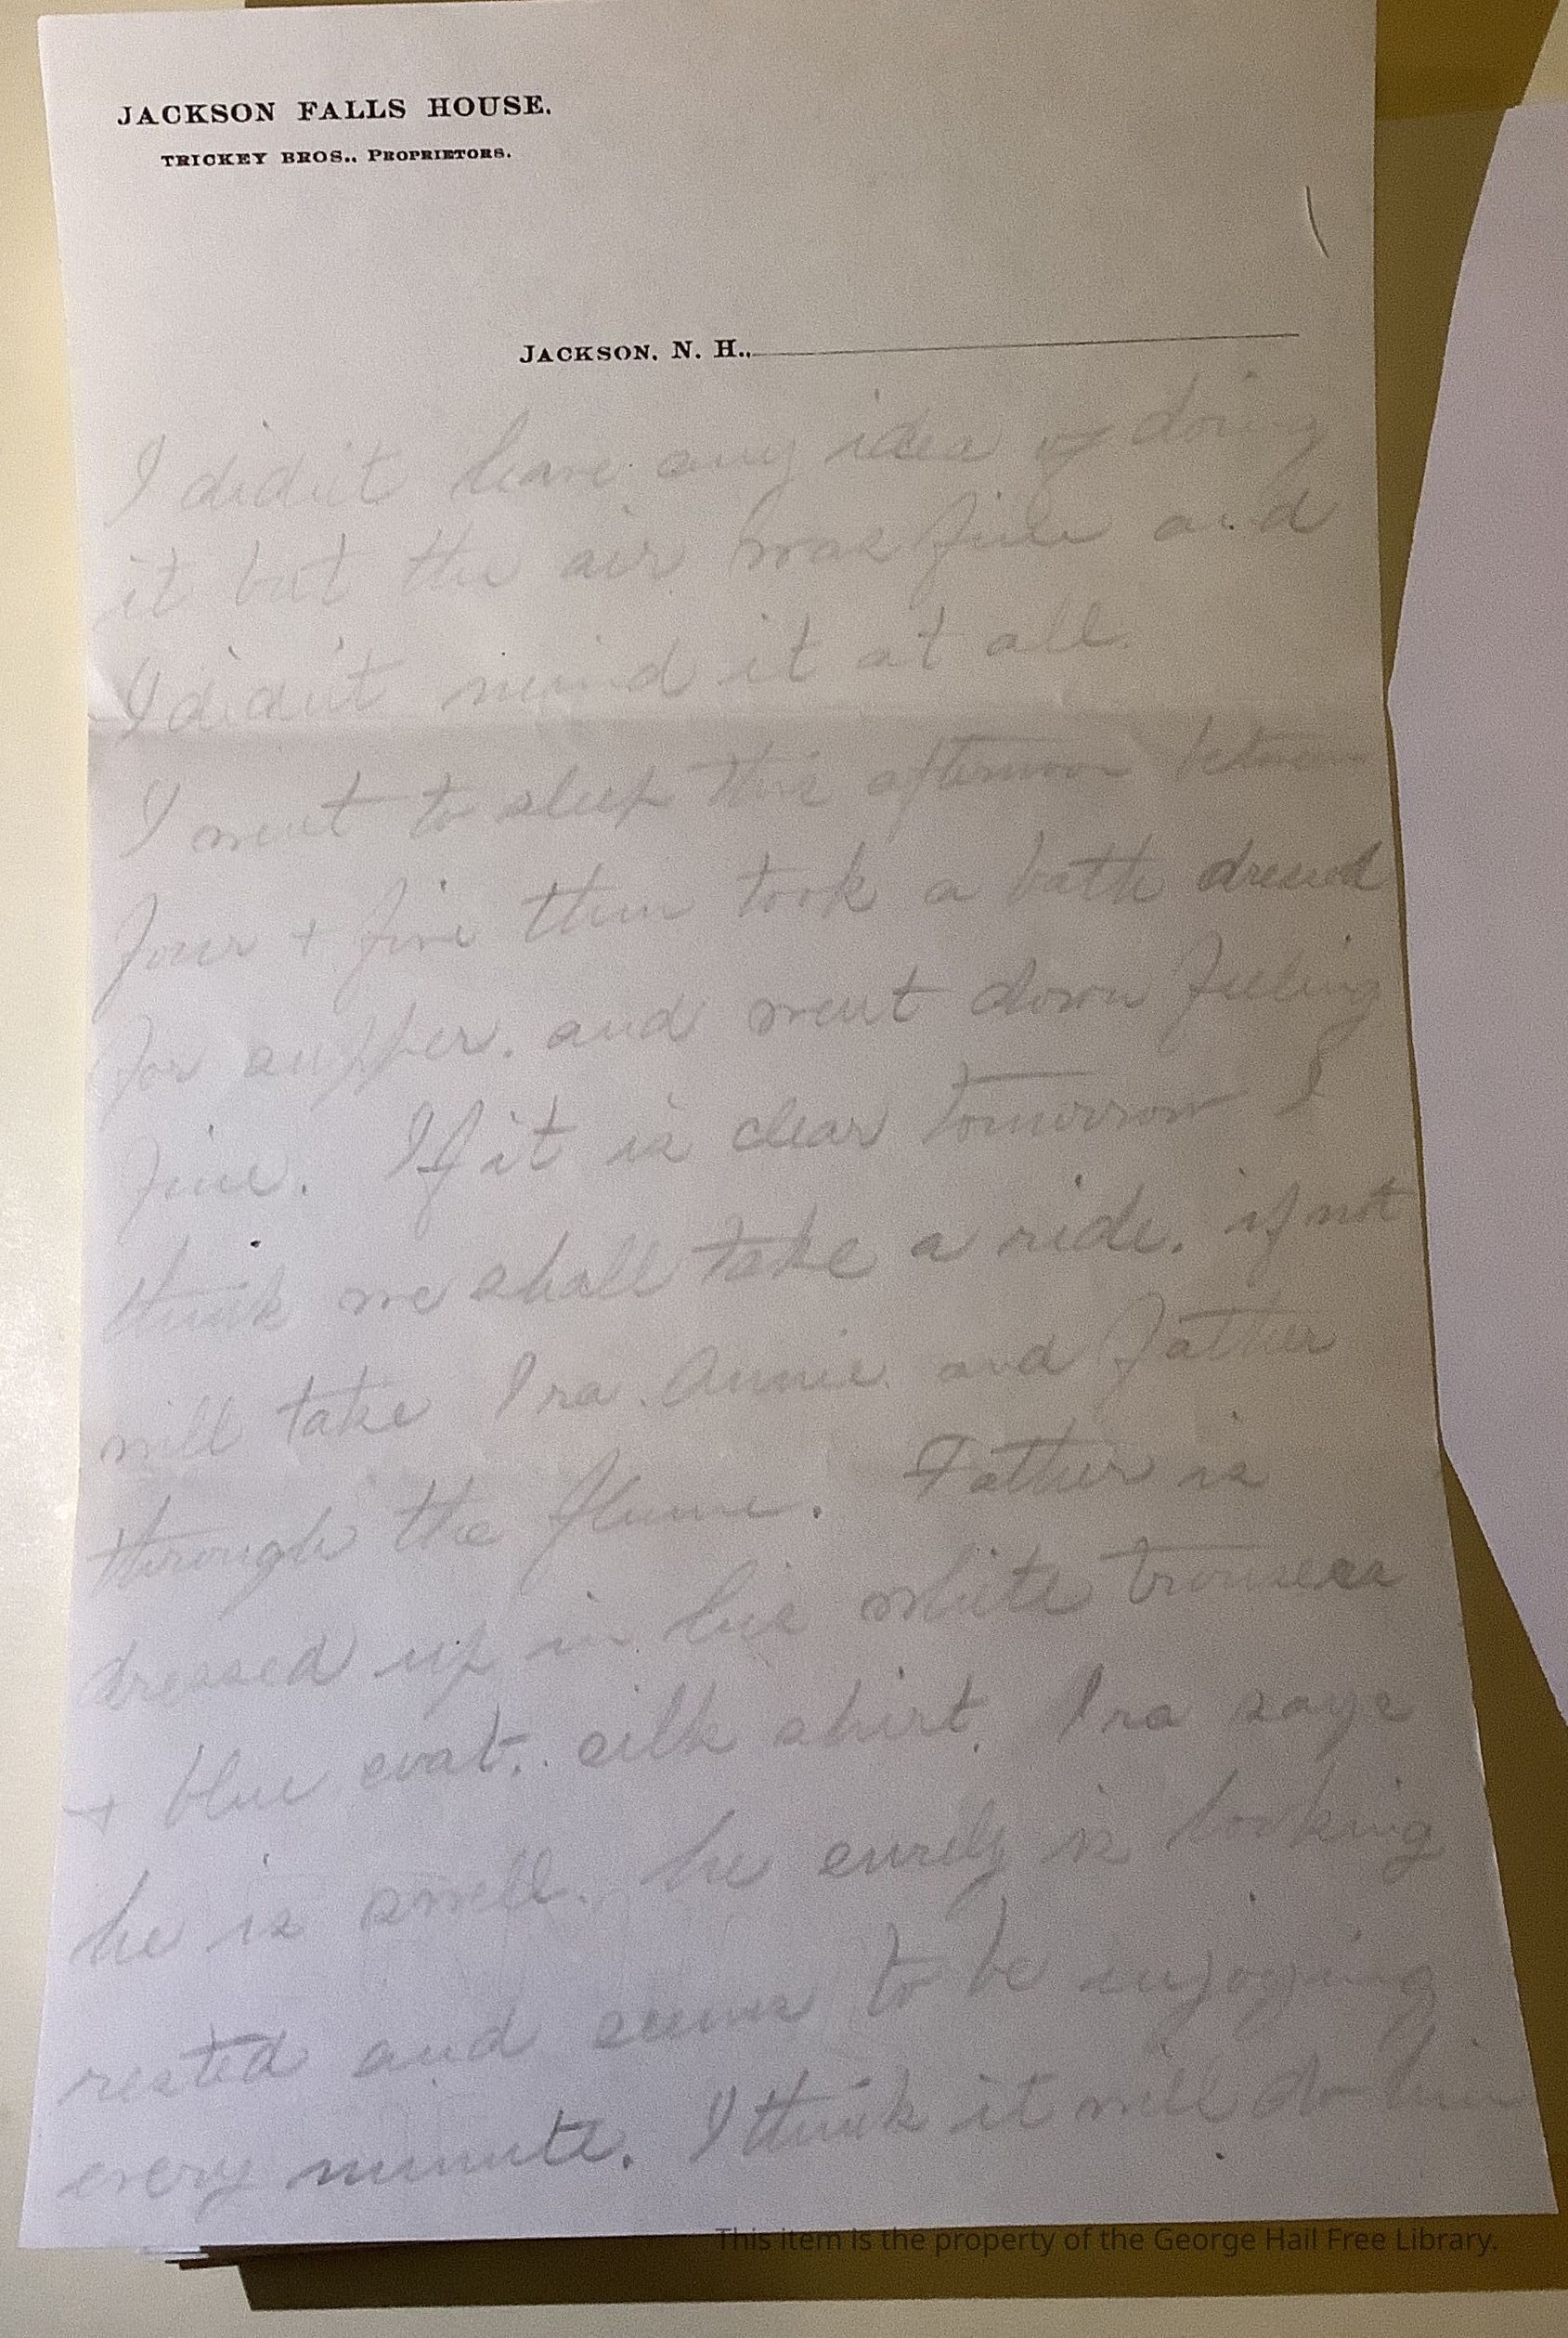 JACKSON FALLS HOUSE.
TRICKEY BROS., PROPRIETORS.
JACKSON, N. H.,
I didn't have any idea of doing
it but the air was fine and
I didn't mind it at all.
I went to sleep this afternoon between
four + five then took a bath dressed
for supper. and went down feeling
fine. If it is clear tomorrow I
think we shall take a ride. if not
will take Ira. Annie. and Father
through the flume. Father is
dressed up in his white trousers
+ blue coat. silk shirt. Ira says
he is swell. he surely is looking
rested and seems to be enjoying
every minute. I think it will do him
This item is the property of the George Hail Free Library.